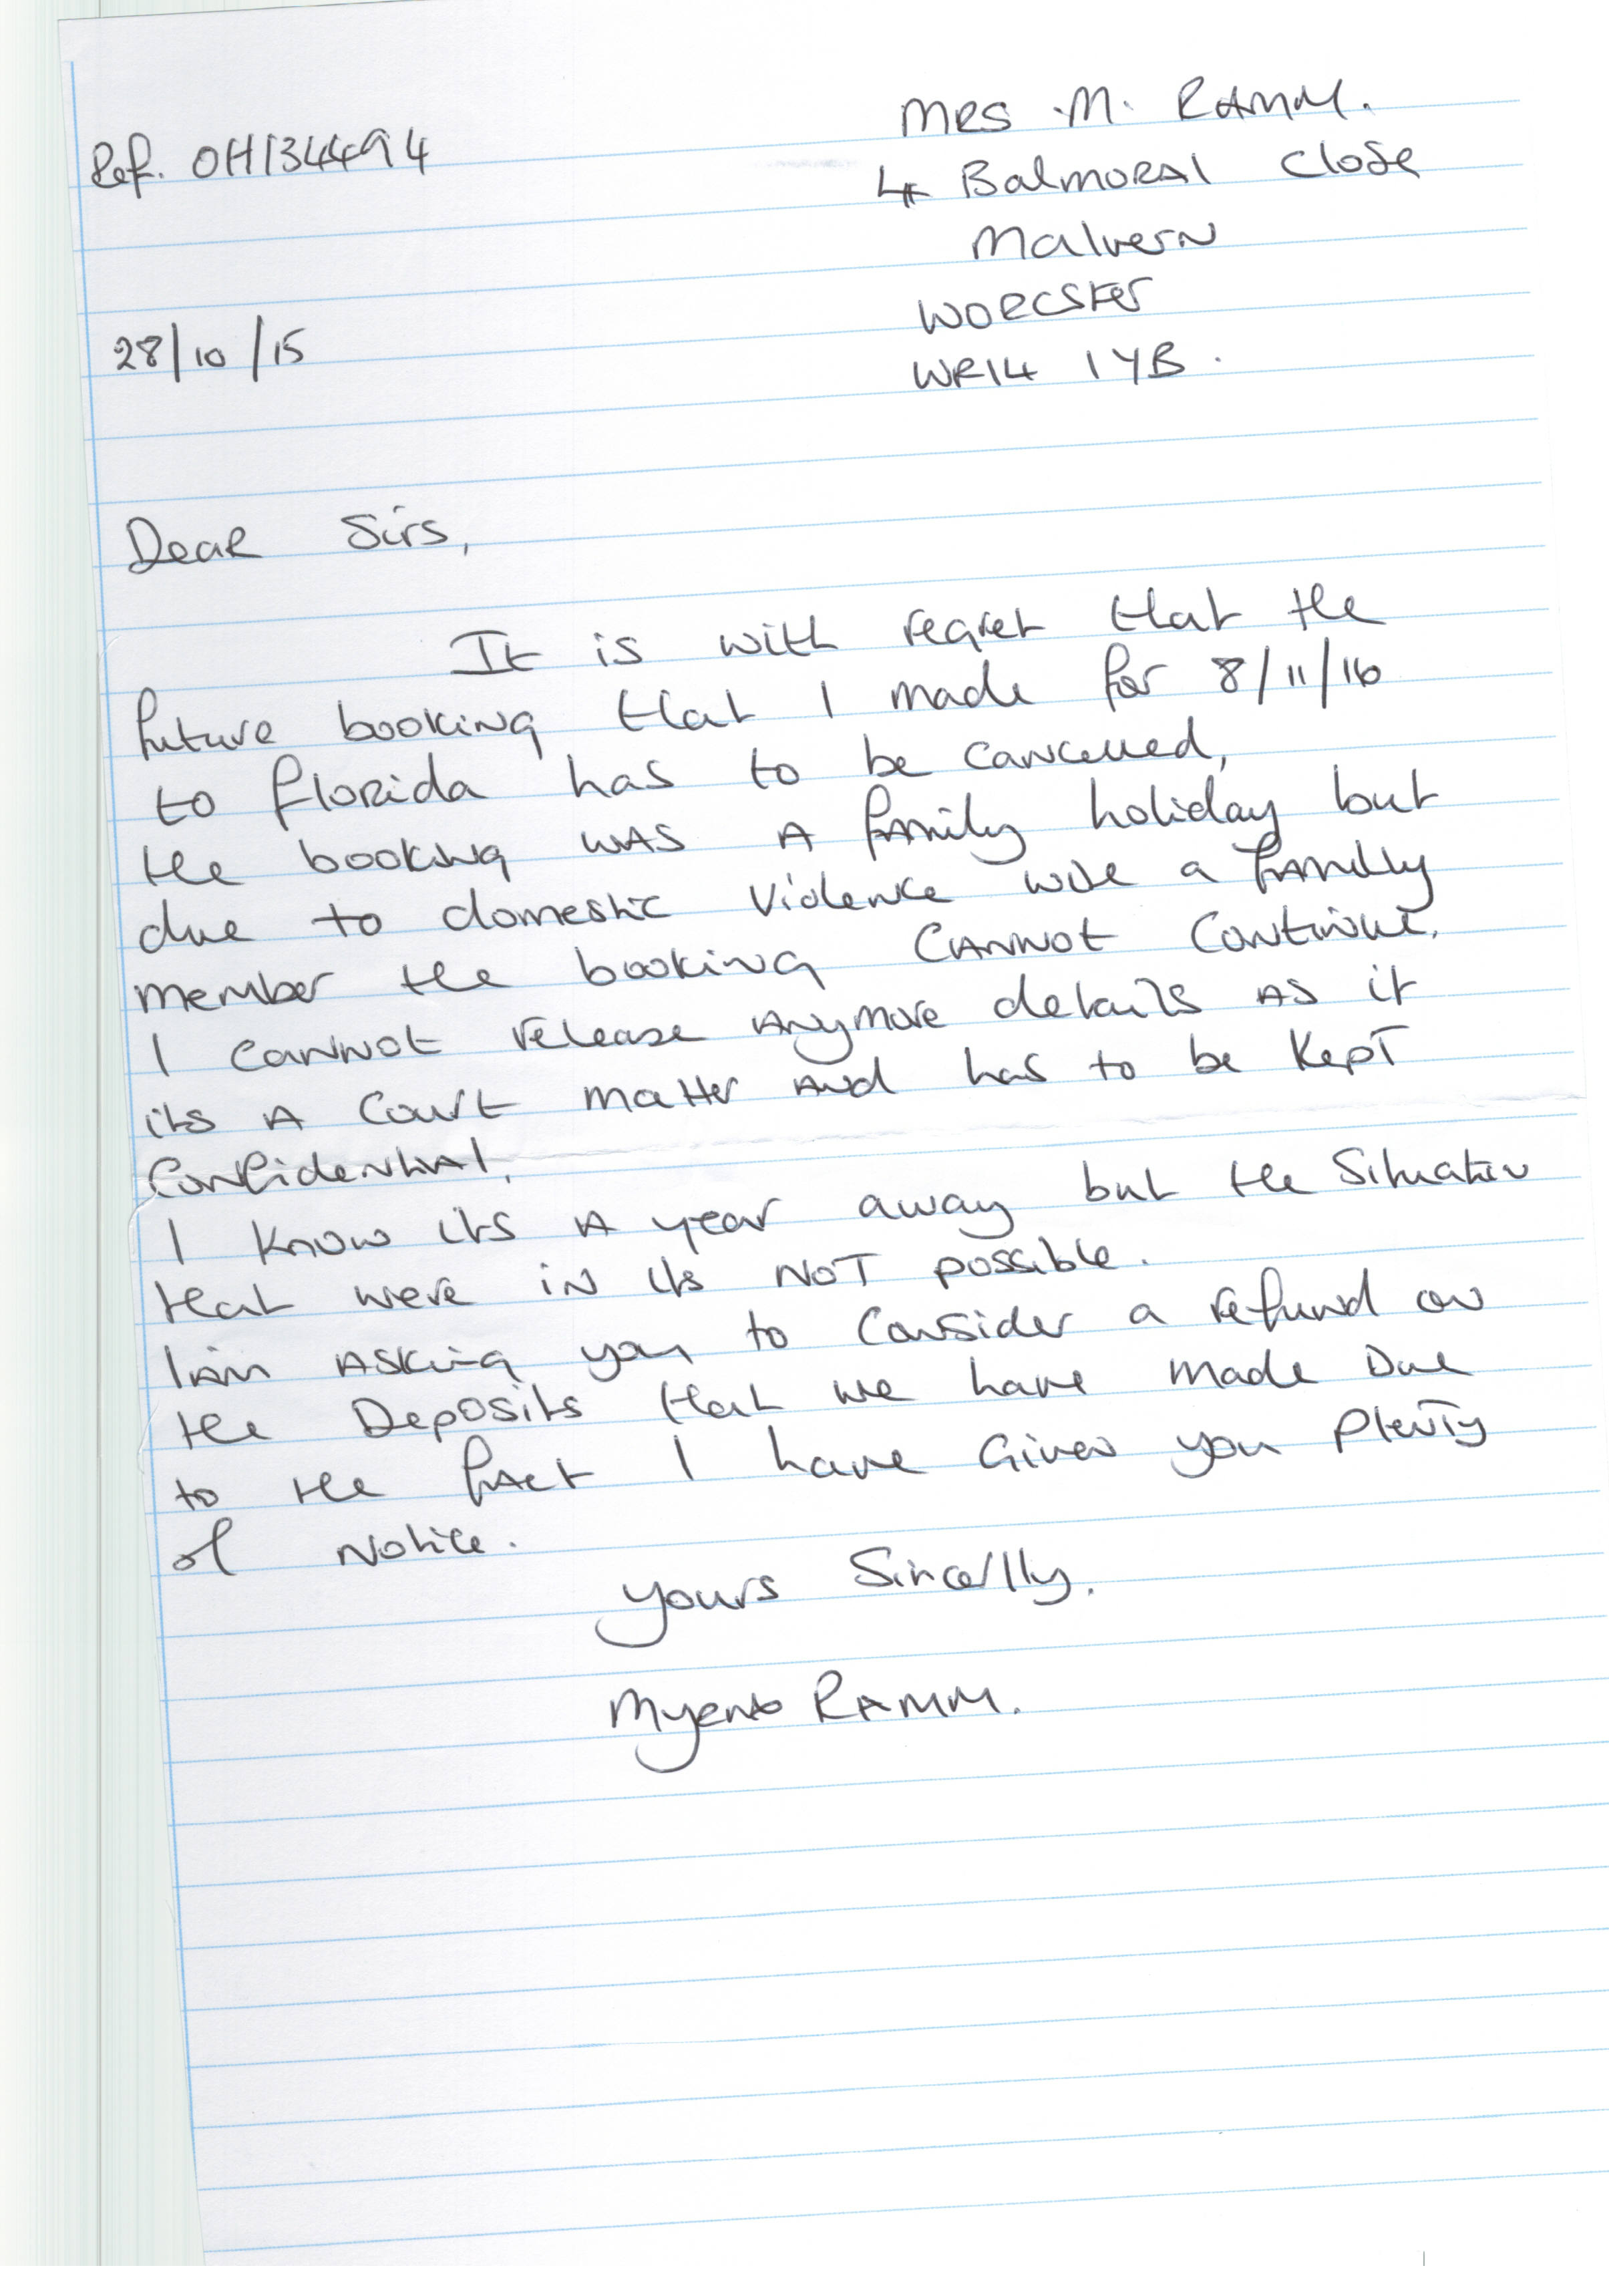 Mrs M. Ramm.
Ref. OH1344494
4 Balmoral Close
Malvern
Worcster
WR14 1YB.
28/10/15
Dear Sirs,
It is with regret that the
future booking that I made for 8/11/16
to florida has to be cancelled,
the booking was a family holiday but
due to domestic violence with a family
member the booking cannot continue.
I cannot release anymore details as it
its a court matter and has to be kept
confidential.
I know its a year away but the situation
that were in its NOT possible.
I am asking you to consider a refund on
the Deposits that we have made Due
to the fact I have given you plenty
of notice.
yours
RAMM.